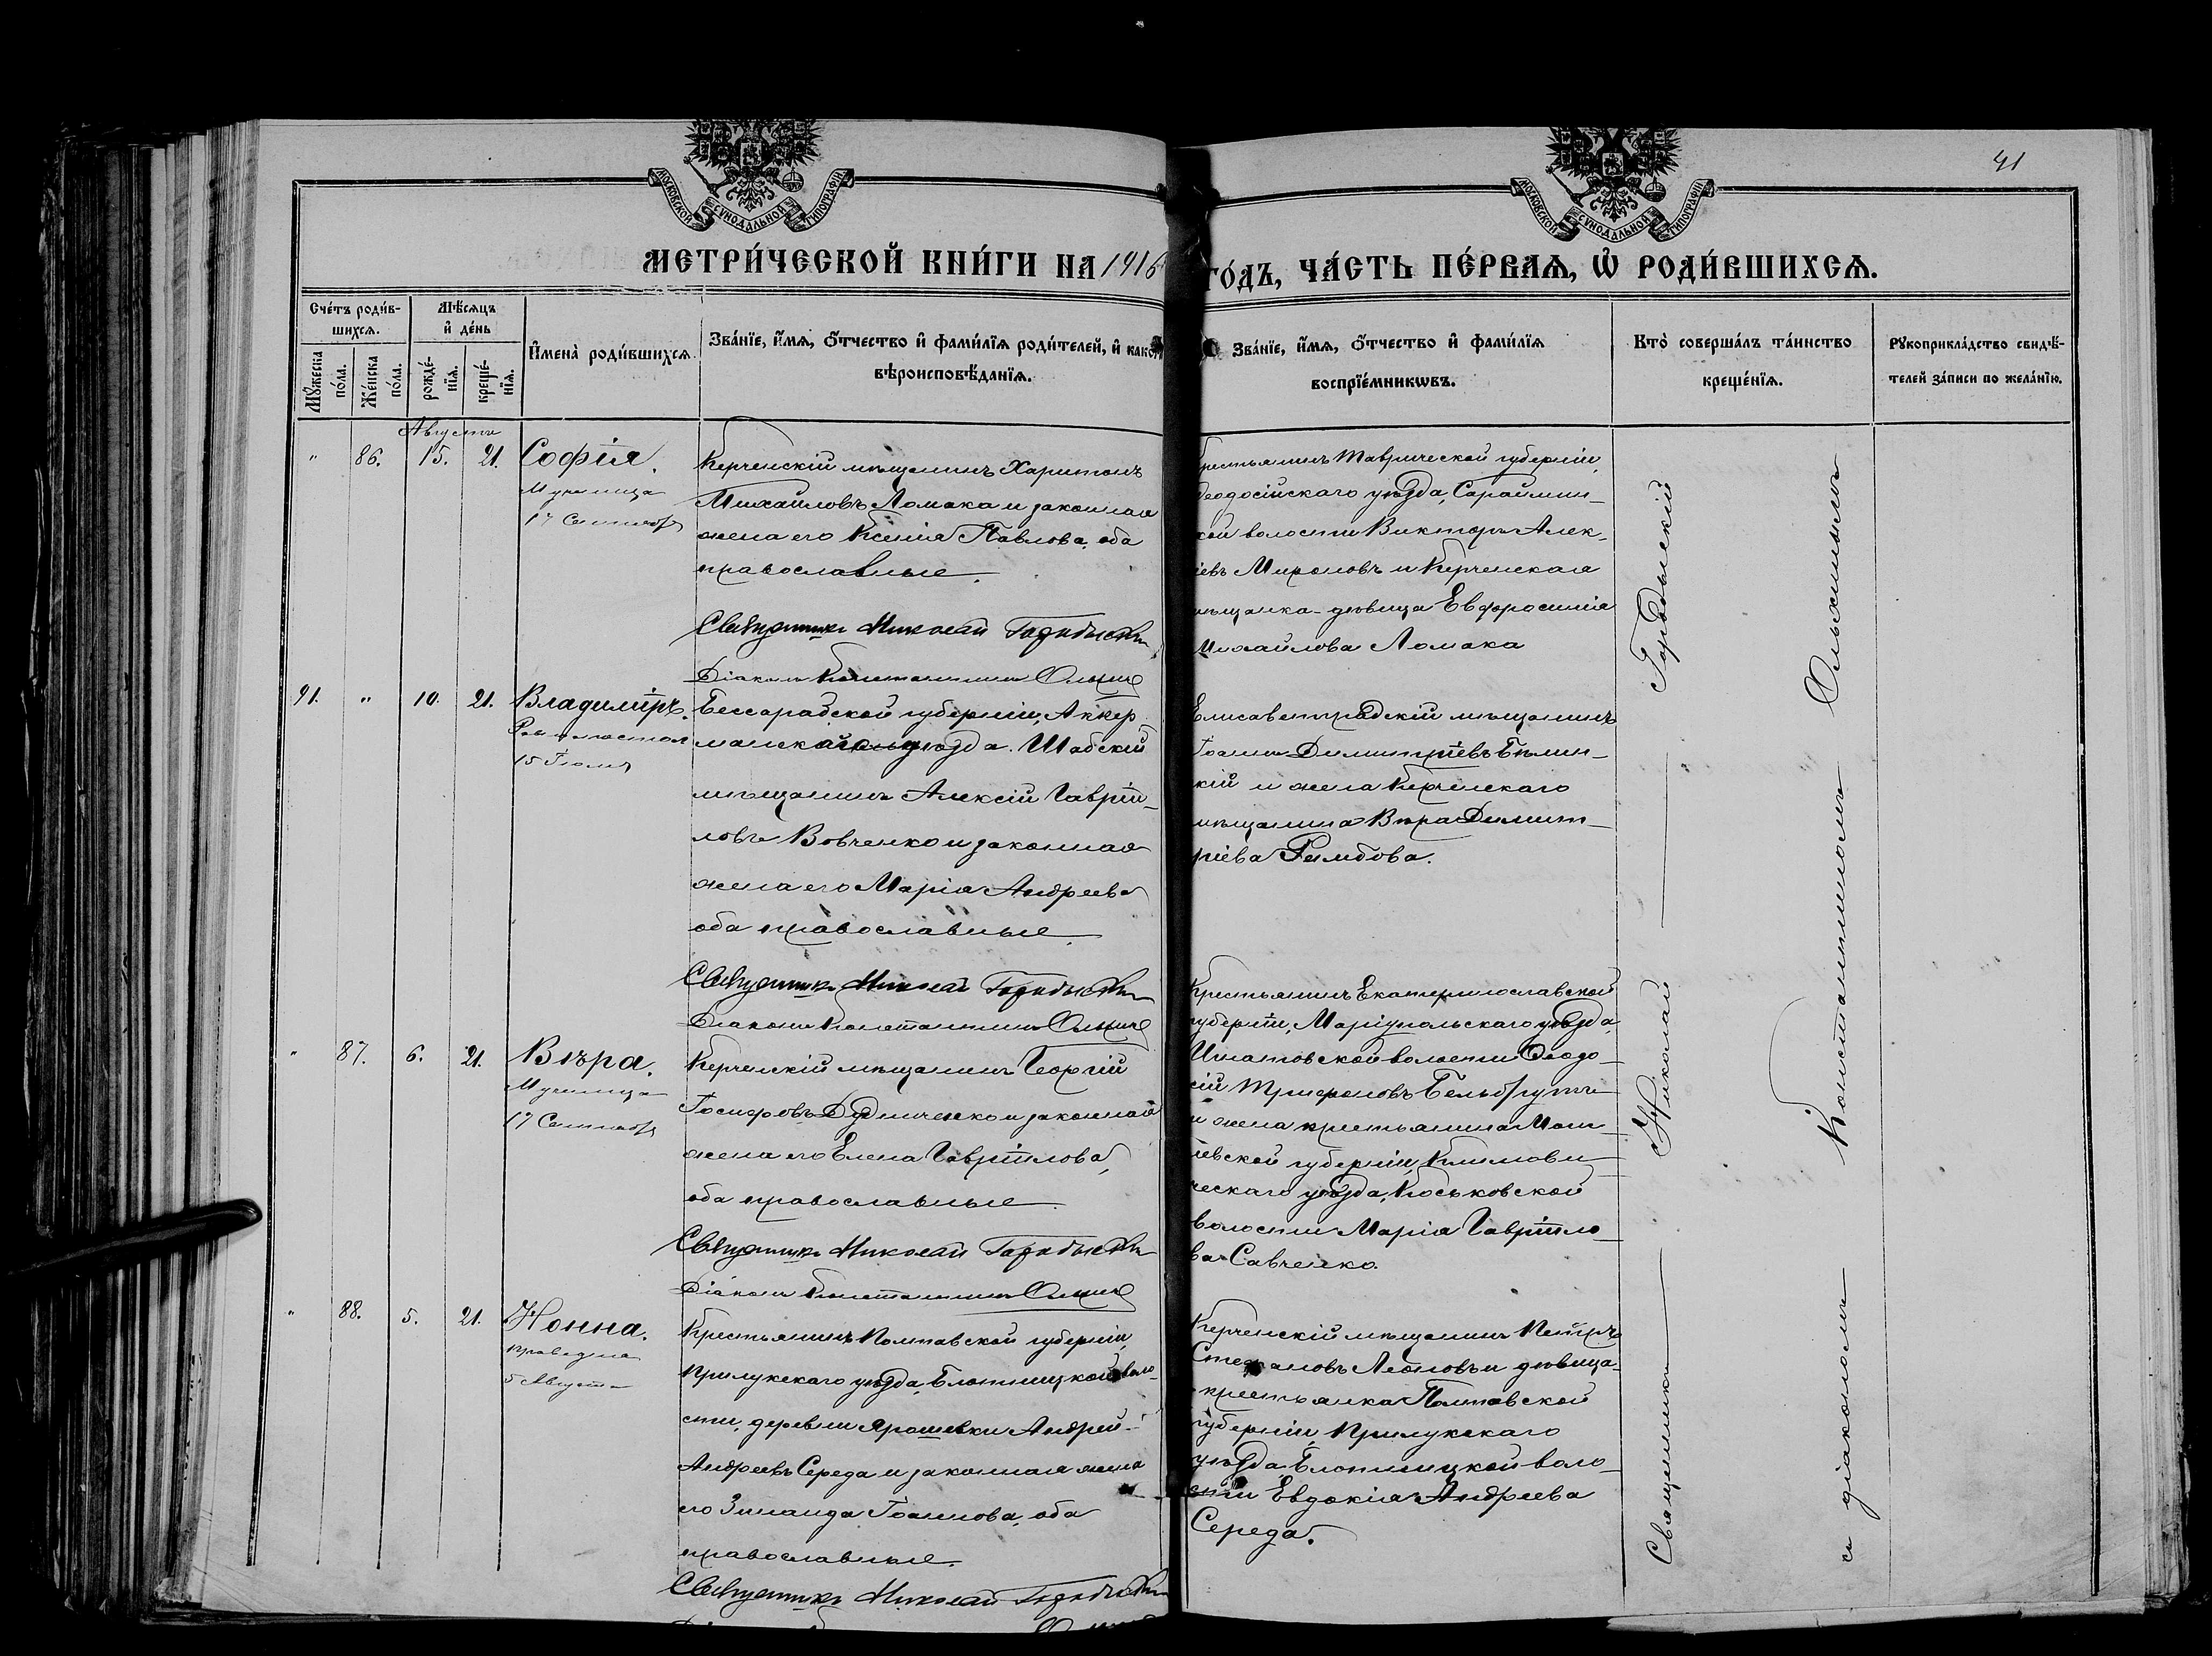 41
МОСКОВСКОЙ СѴНОДАЛЬНОЙ ТИПОГРАФІИ
МОСКОВСКОЙ СѴНОДАЛЬНОЙ ТИПОГРАФІИ
МЕТРИ́ЧЕСКОЙ КНИ́ГИ НА 1916
ГО́ДЪ, ЧА́СТЬ ПЕ́РВАЯ, Ѡ РОДИ́ВШИХСЯ.
Сче́тъ роди́в-
шихся.
Мѣ́сяцъ
и де́нь
Мꙋ́жеска
по́ла.
Же́нска
по́ла.
рожде́-
нїя.
креще́-
нїя.
Имена̀ роди́вшихся
Зва́нїе, и́мя, о́тчество и фами́лїя роди́телей, и како́й
вѣроисповѣ́данїя.
Зва́нїе, и́мя, о́тчество и фами́лїя
воспрїе́мникѡвъ.
Кто̀ соверша́лъ та́инство
креще́нїя.
Рꙋкоприкла́дство свидѣ́-
телей за́писи по жела́нїю.
Августъ
" 86. 15. 21. Софія.
Мученица
17 Сентябр
Керченскій мѣщанинъ Харитонъ
Михаиловъ Ломака и законная
жена его Ксенія Павлова, оба
православные.
Священникъ Николай
Діаконъ Константинъ
Крестьянинъ Таврической губерніи,
Ѳеодосійскаго уѣзда, Сараймин-
ской волости Викторъ Алек-
іевъ Мироновъ и Керченская
мѣщанка-дѣвица Евфросинія
Михаилова Ломака
91. " 10. 21. Владиміръ.
Равноапостол
15 Іюля
Бессарабской губерніи, Аккер-
манскаго уѣзда. Шабскій
мѣщанинъ Алексій Гавріи-
ловъ Вовченко и законная
жена его Марія Андреева
оба православные.
Священникъ Николай
Діаконъ Константинъ
Елисаветградскій мѣщанинъ
Іоаннъ Димитріевъ Бѣлин-
кій и жена Керченскаго
мѣщанина Вѣра Димит-
ріева Рембова.
" 87. 6. 21. Вѣра.
Мученица
17 Сентябр
Керченскій мѣщанинъ Георгій
Іосифовъ Дудниченко и законная
жена его Елена Гавріилова,
оба православные.
Священникъ Николай
Діаконъ Константинъ
Крестьянинъ Екатеринославской
губерніи, Маріупольскаго уѣзда,
Игнатовской волости Ѳеодо-
сій Трифоновъ
и жена крестьянина Моги-
левской губерніи, Климови-
ческаго уѣзда, Костьковской
волости Марія Гавріило-
ва Савченко.
" 88. 5. 21. Нонна.
праведная
5 Августа
Крестьянинъ Полтавской губерніи,
Прилукскаго уѣзда, воло-
сти, деревни Ярошевки Андрей
Андреевъ Середа и законная жена
его Зинаида Іоаннова, оба
православные.
Священникъ Николай
Керченскій мѣщанинъ Петръ
Стефановъ Леоновъ и дѣвица-
крестьянка Полтавской
губерніи, Прилукскаго
уѣзда, воло-
сти Евдокія Андреева
Середа.
Священникъ Николай
съ діакономъ Константиномъ